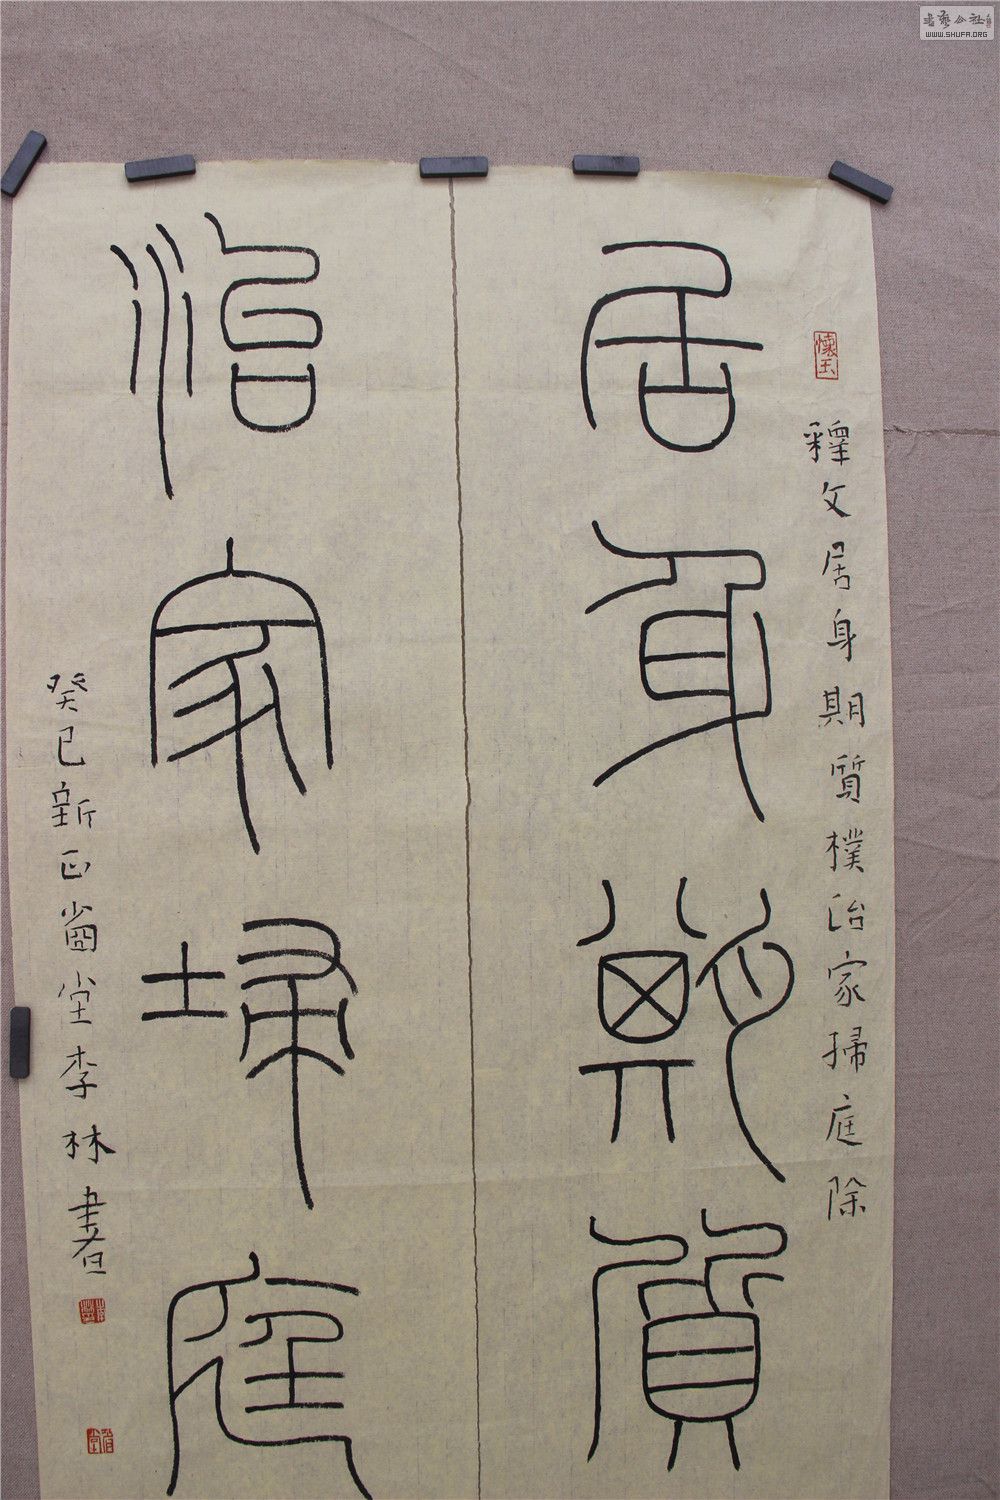 居身期質
釋文居身期質樸治家掃庭除
懷玉
治家埽庭
癸巳新正
堂李林書
書藝公社
WWW.SHUFA.ORG